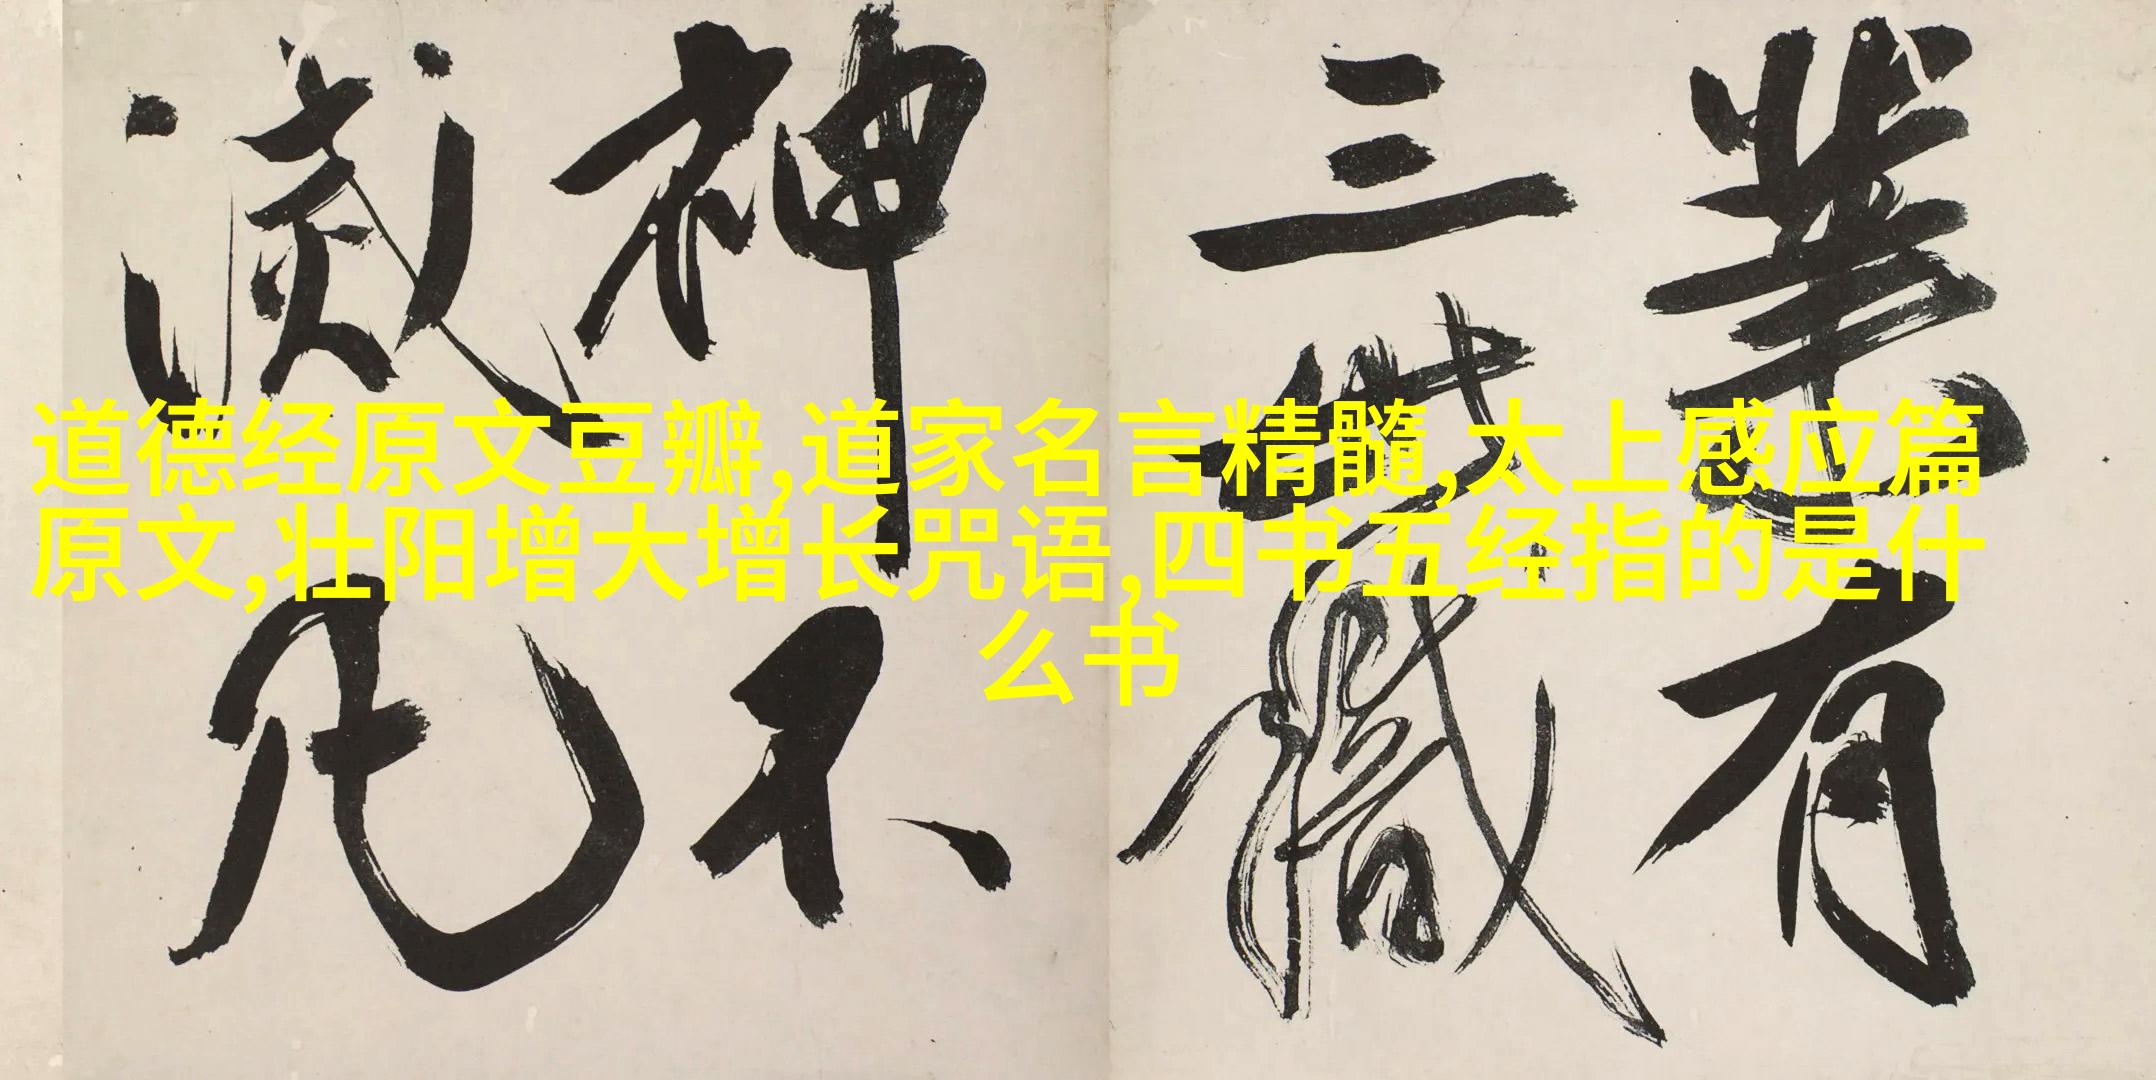 道德经原文豆瓣,道家名言精髓,太上感应篇
原文,壮阳增大增长咒语,四书五经指的是什
么书
業有
三世識
神不
滅凡